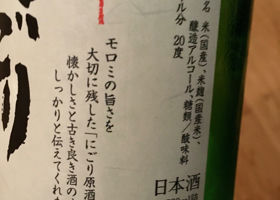 名 米(国産)、米麹(国産米)、
醸造アルコール、糖類/酸味料
ル分 20度
モロミの旨さを
大切に残した「にごり原酒
懐かしさと古き良き酒の
しっかりと伝えてくれた
ごり
日本酒